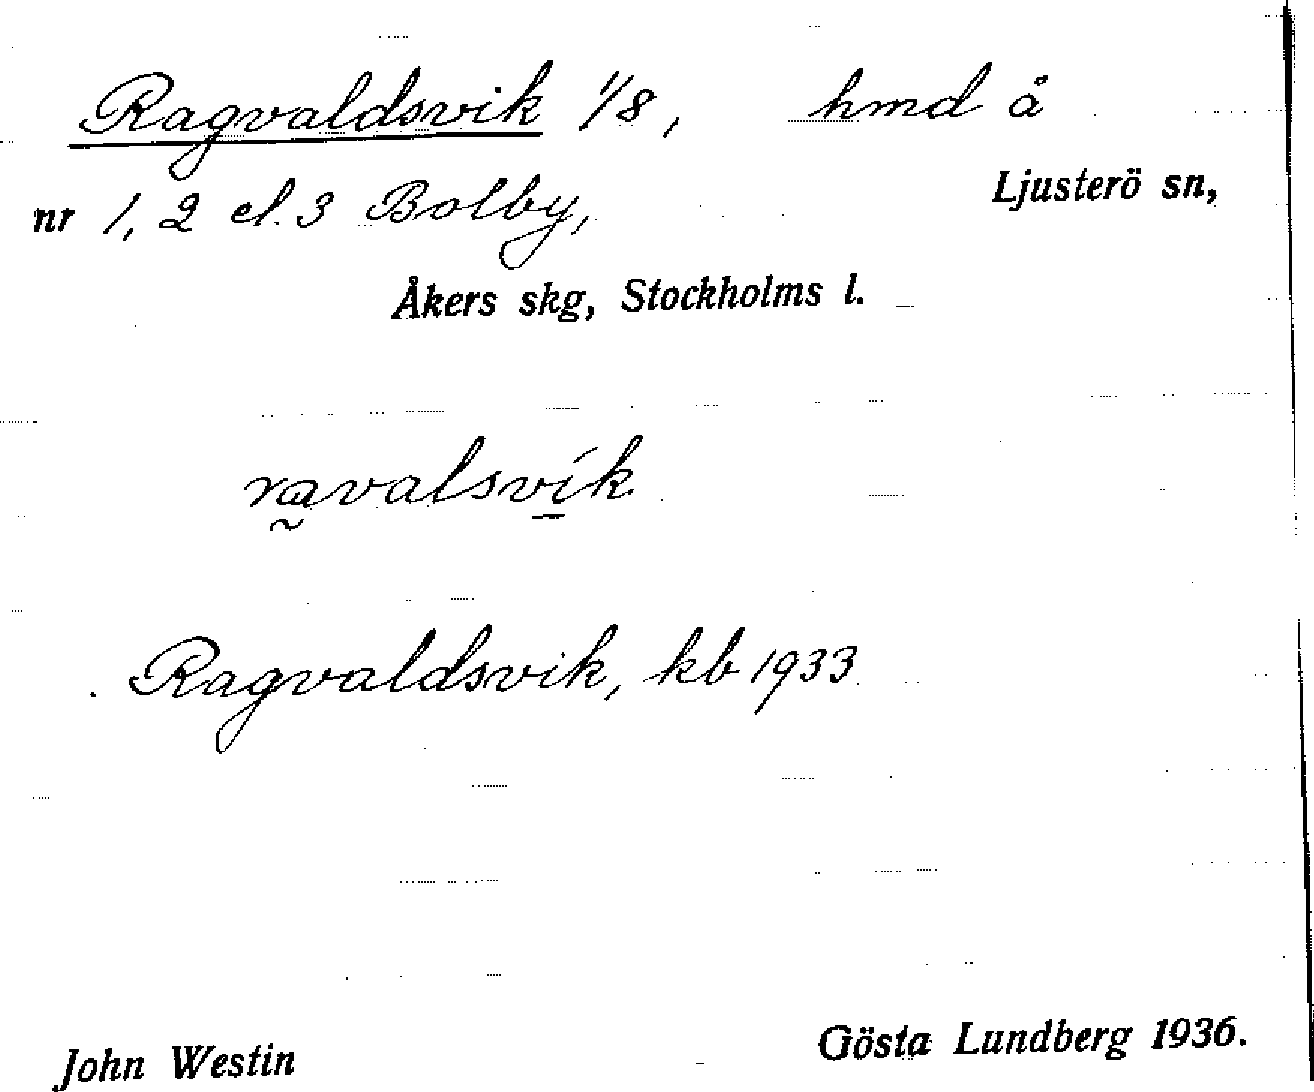 Ragvaldsvik 1/8, hmd å
nr 1, 2 el. 3 Bolby, Ljusterö sn,
Åkers skg, Stockholms l.
ravalsvík
Ragvaldsvik, kb 1933
John Westin Gösta Lundberg 1936.